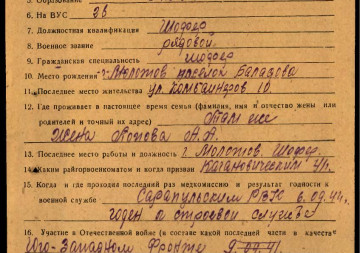 5. Образование
6. На ВУС 28
7. Должностная квалификация Шофер
8. Военное звание рядовой
9. Гражданская специальность шофер
10. Место рождения г. Молотов поселок Балатова
11. Последнее место жительства ул. Комбайнеров 10.
12. Где проживает в настоящее время семья (фамилия, имя и отчество жены или
родителей и точный их адрес) Там же
жена Попова А. А.
13. Последнее место работы и должность г. Молотов. Шофер.
14. Каким райгорвоенкоматом и когда призван Кагановическим
15. Когда и где проходил последний раз медкомиссию и результат годности к
военной службе Сарапульским РВК 6.09.44г.
годен к строевой службе
16. Участие в Отечественной войне (в составе какой последней части в качестве
Юго-Западном Фронте 9.41